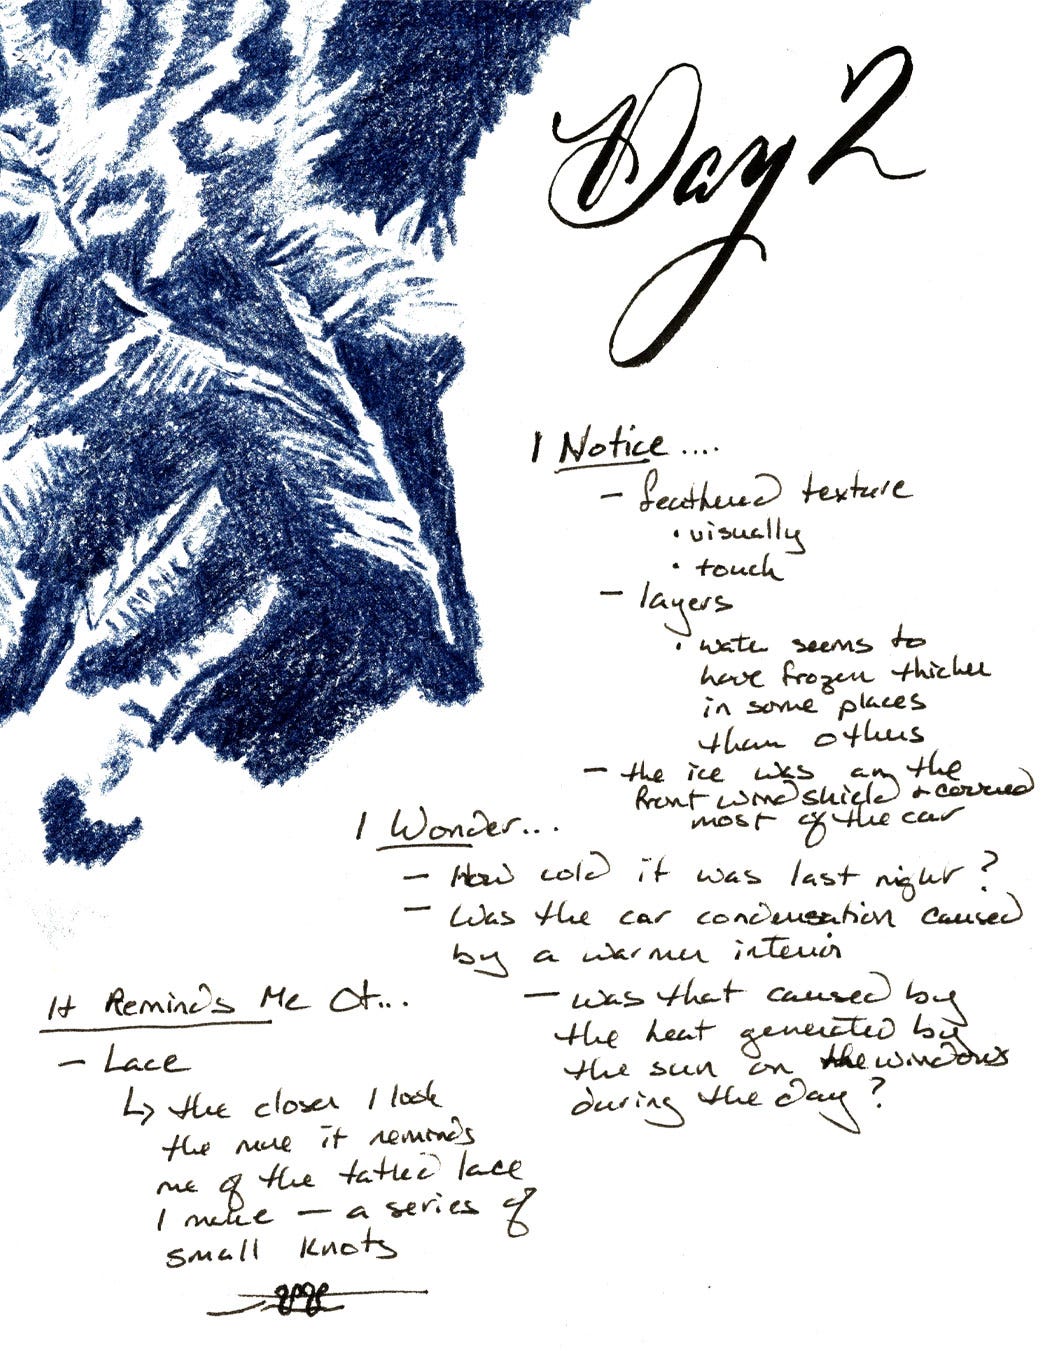 Day 2
I Notice....
- feathered texture
• visually
• touch
- layers
• water seems to
have frozen thicker
in some places
than others
- the ice was on the
front windshield + covered
most of the car
I Wonder...
- How cold it was last night?
- Was the car condensation caused
by a warmer interior
- was that caused by
the heat generated by
the sun on the windows
during the day?
It Reminds Me Of...
- Lace
↳ the closer I look
the more it reminds
me of the tatted lace
I make — a series of
small knots